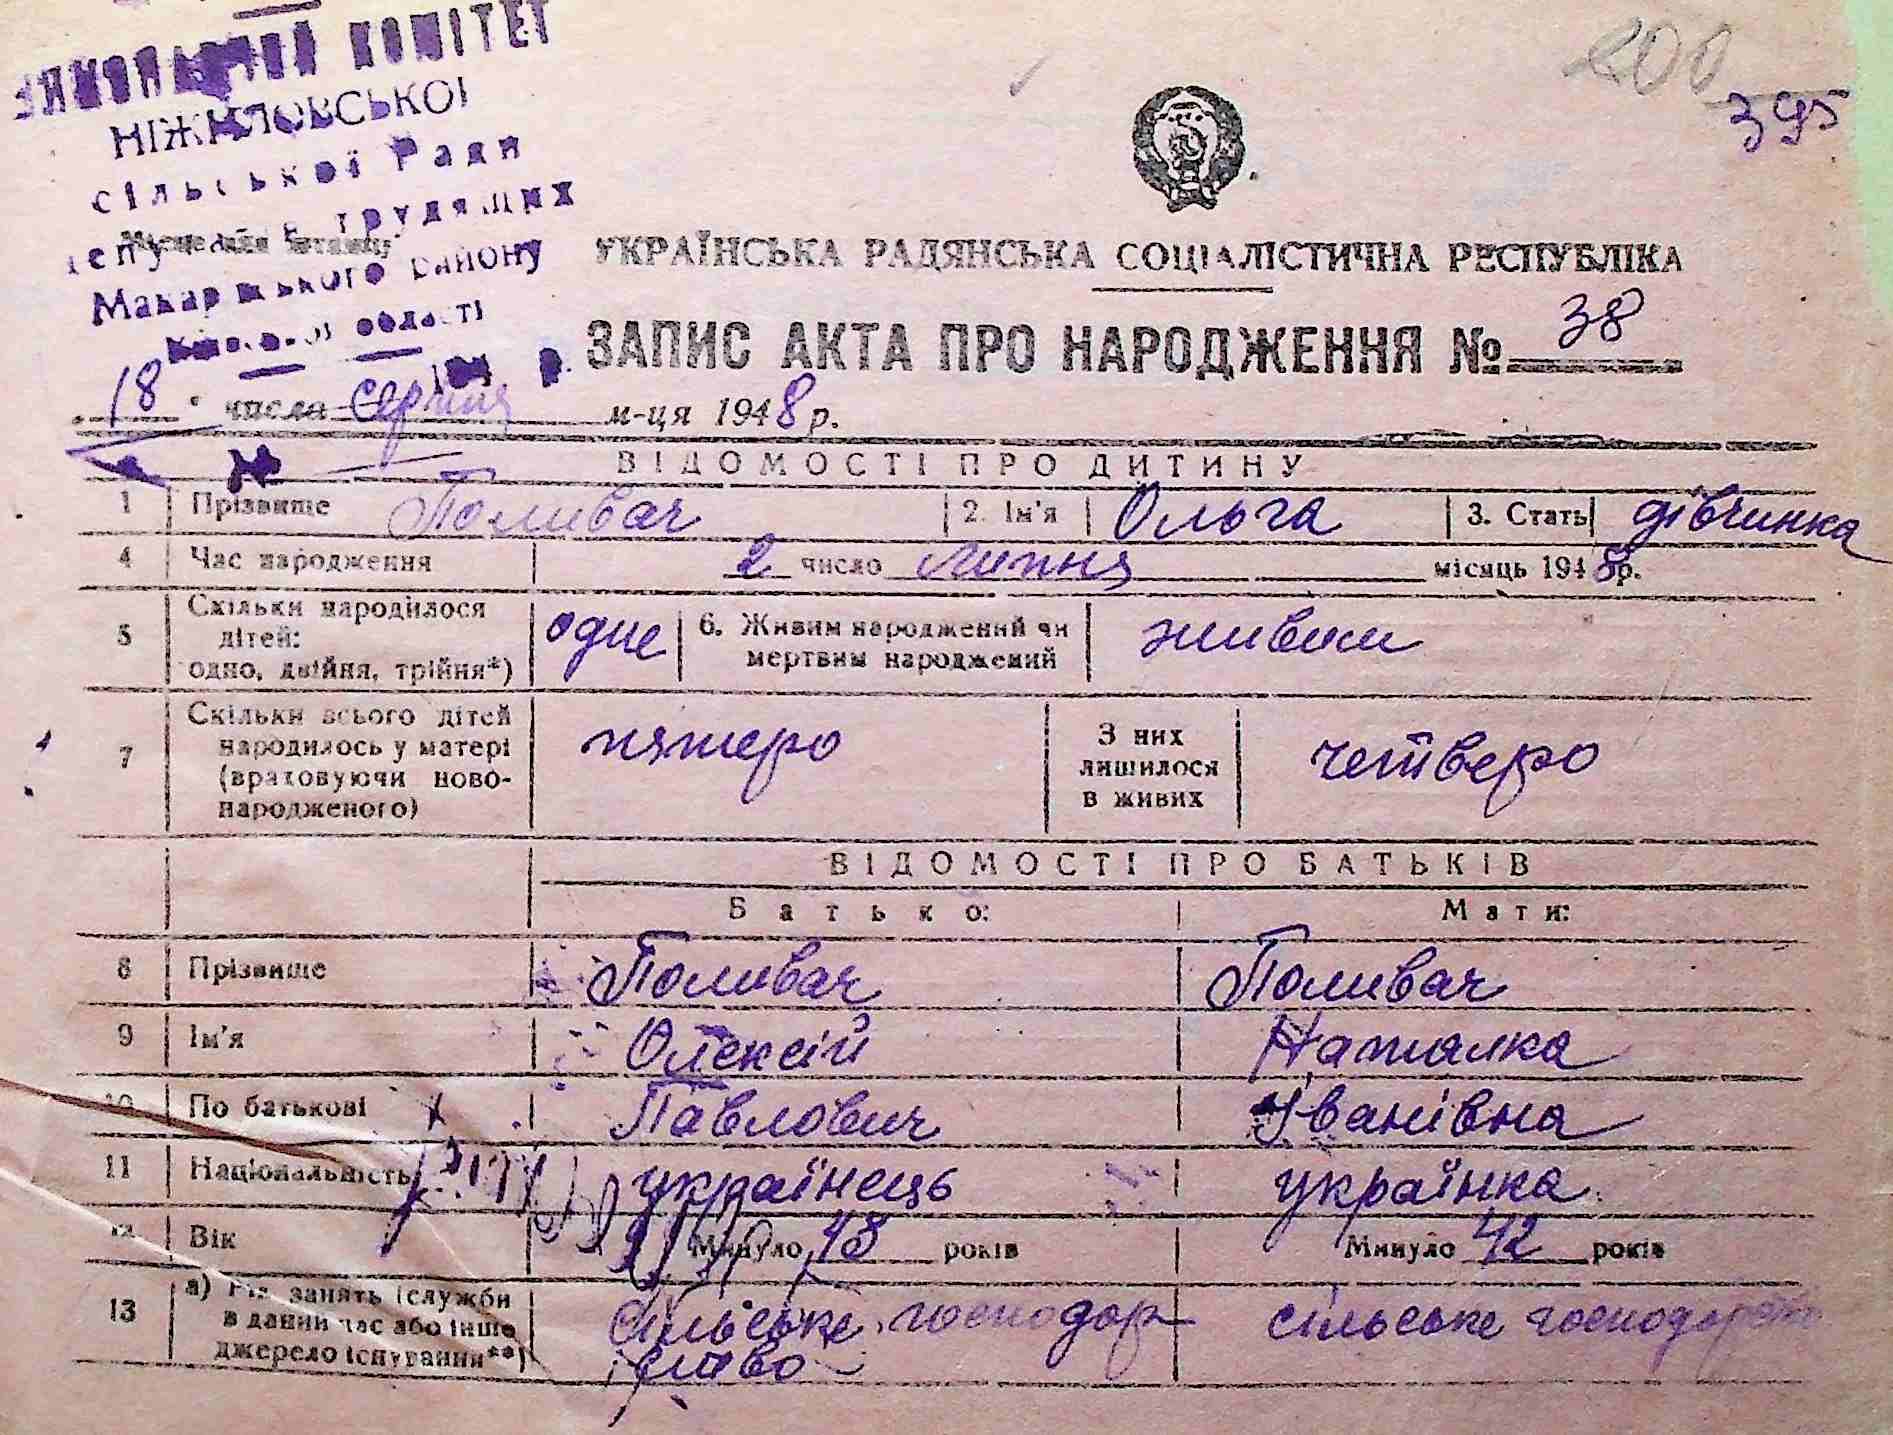 ВИКОНАВЧИЙ КОМІТЕТ
НІЖИЛОВСЬКОЇ
сільської Ради
депутатів трудящих
Макарівського району
Київської області
200
395
УКРАЇНСЬКА РАДЯНСЬКА СОЦІАЛІСТИЧНА РЕСПУБЛІКА
ЗАПИС АКТА ПРО НАРОДЖЕННЯ № 38
18 числа серпня м-ця 1948 р.
ВІДОМОСТІ ПРО ДИТИНУ
1 Прізвище Поливач 2. Ім'я Ольга 3. Стать дівчинка
4 Час народження 2 число липня місяць 1948 р.
5 Скільки народилося дітей: одно, двійня, трійня*) одне 6. Живим народжений чи мертвим народжений живим
7 Скільки всього дітей народилось у матері (враховуючи новонародженого) пятеро З них лишилося в живих четверо
ВІДОМОСТІ ПРО БАТЬКІВ
Батько: Мати:
8 Прізвище Поливач Поливач
9 Ім'я Олексій Наталка
10 По батькові Павлович Іванівна
11 Національність українець українка
12 Вік Минуло 48 років Минуло 42 років
13 а) Рід занять (служби в даний час або інше джерело існування**) сільське господарство сільське господарство